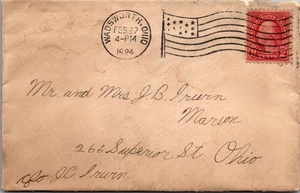 WADSWORTH, OHIO
FEB 27
4-PM
1924
Mr. and Mrs J. B. Irwin
Marion
266 Superior St Ohio
c/o J C Irwin